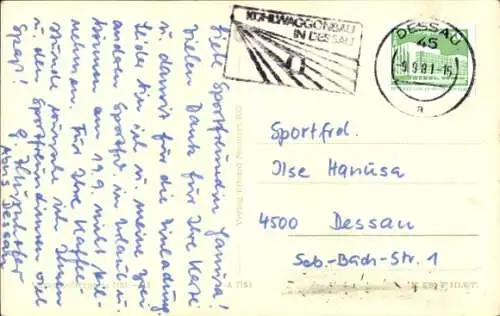 KÜHLWAGGONBAU
IN DESSAU
DESSAU
45
-9.9.81-15
a
Liebe Sportfreundin Hanusa!
Vielen Dank für Ihre Karte
u. damit für die Einladung.
Leider bin ich u. meine zwei
anderen Sportfr. in Urlaub u.
können am 19.9. nicht teil-
nehmen. Für Ihre Kaffee-
stunde wünsche ich Ihnen
u. den Sportfreundinnen viel
Spaß!
Abus Dessau
Sportfrd.
Ilse Hanusa
4500 Dessau
Seb.-Bach-Str. 1
Verlag Erhard Neubert KG